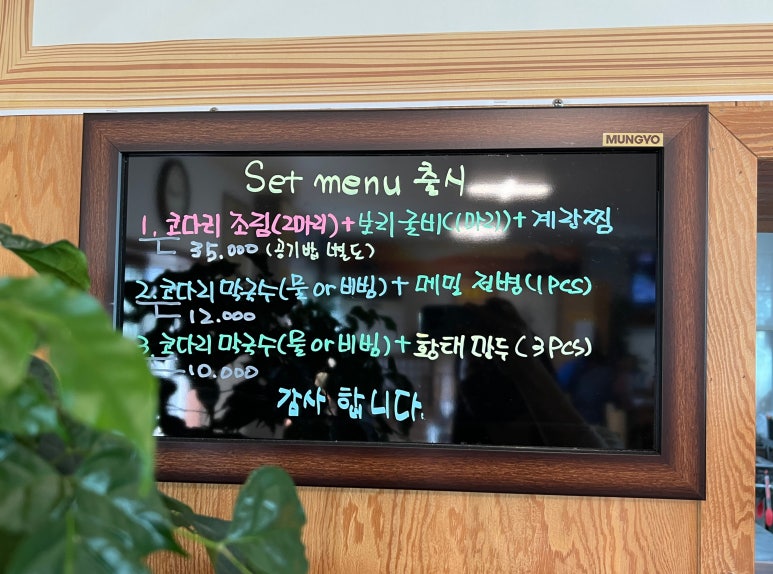 MUNGYO
Set menu 출시
1. 코다리 조림(2마리)+보리굴비(1마리)+계란찜
35.000 (공기밥 별도)
2. 코다리 막국수(물 or 비빔)+메밀 전병(1pcs)
12.000
3. 코다리 막국수(물 or 비빔)+황태만두(3pcs)
10.000
감사합니다.